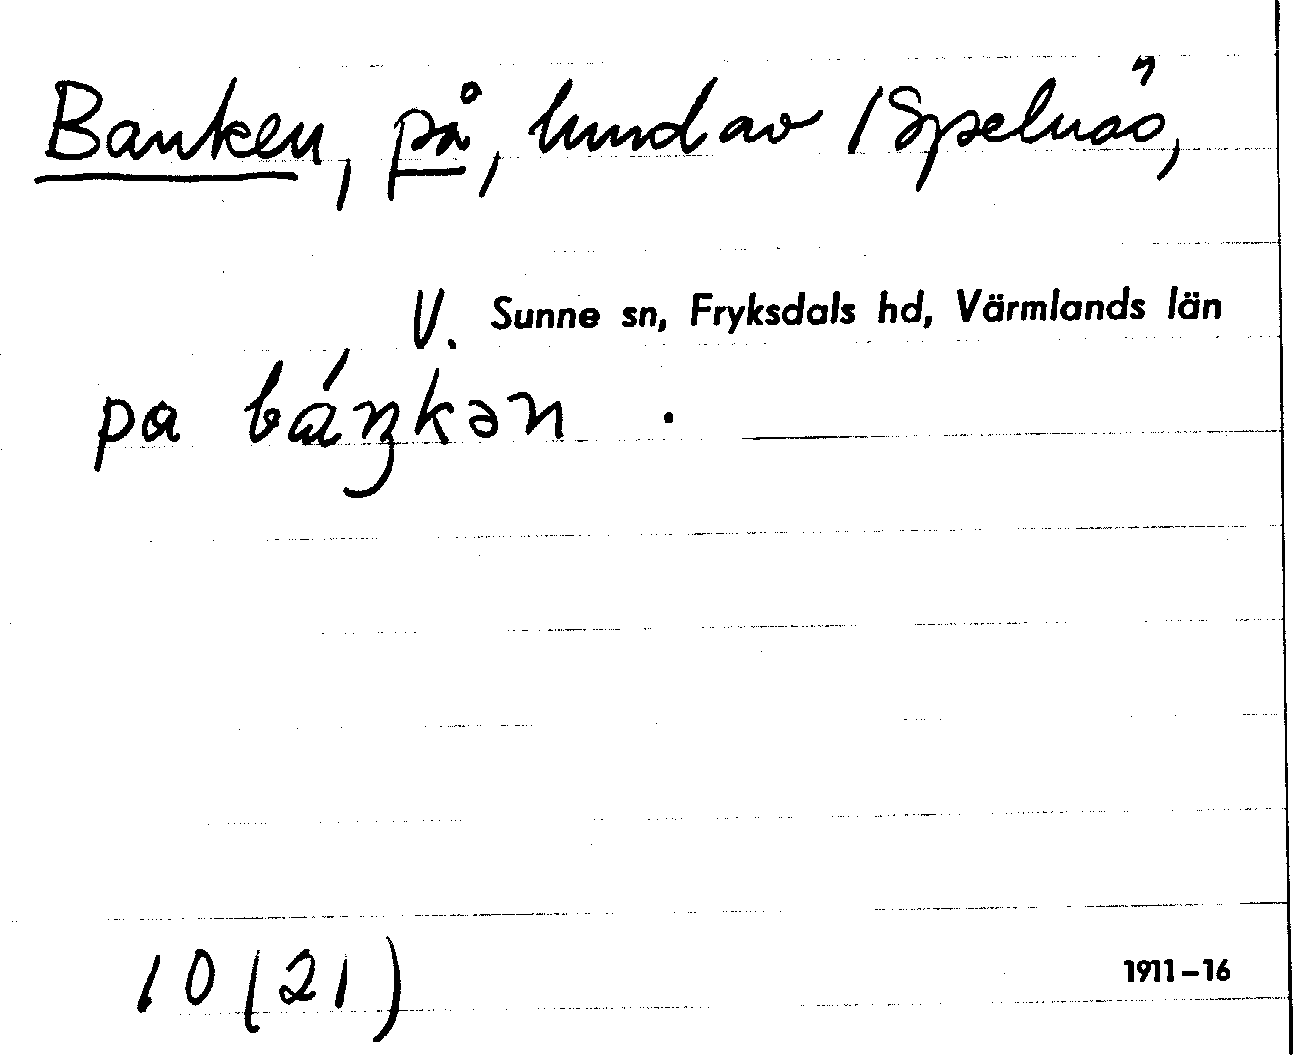 Banken, på, lund av 1 Spelnäs,
V. Sunne sn, Fryksdals hd, Värmlands län
pa báŋkən .
10 (21)
1911–16